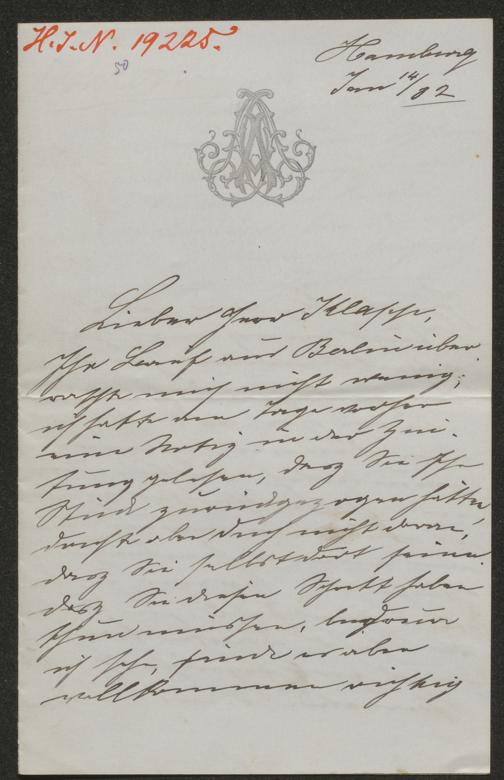 H.I.N. 19225.
50
Hamburg
Jan 14/82
Lieber Herr Klapp,
Ihr Brief aus Berlin über
raschte mich nicht wenig;
ich hatte am Tage vorher
eine Notiz in der Zei-
tung gelesen, dasz Sie Ihr
Stück zurückgezogen hätten,
dachte aber doch nicht daran,
dasz Sie selbst dort seien.
dasz Sie diesen Schritt haben
thun müssen, bedaure
ich sehr, finde es aber
vollkommen richtig